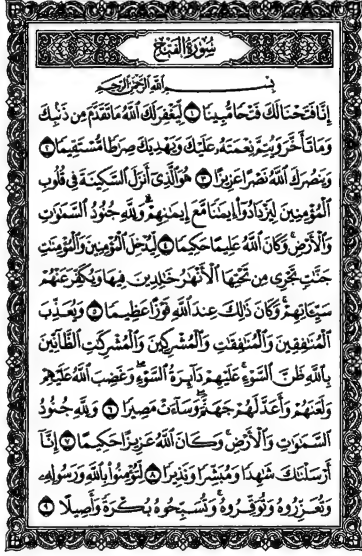 سُورَةُ الفَتْحِ
بِسْمِ اللَّهِ الرَّحْمَٰنِ الرَّحِيمِ
إِنَّا فَتَحْنَا لَكَ فَتْحًا مُّبِينًا ١ لِّيَغْفِرَ لَكَ ٱللَّهُ مَا تَقَدَّمَ مِن ذَنۢبِكَ
وَمَا تَأَخَّرَ وَيُتِمَّ نِعْمَتَهُۥ عَلَيْكَ وَيَهْدِيَكَ صِرَٰطًا مُّسْتَقِيمًا ٢
وَيَنصُرَكَ ٱللَّهُ نَصْرًا عَزِيزًا ٣ هُوَ ٱلَّذِىٓ أَنزَلَ ٱلسَّكِينَةَ فِى قُلُوبِ
ٱلْمُؤْمِنِينَ لِيَزْدَادُوٓا۟ إِيمَٰنًا مَّعَ إِيمَٰنِهِمْ ۗ وَلِلَّهِ جُنُودُ ٱلسَّمَٰوَٰتِ
وَٱلْأَرْضِ ۚ وَكَانَ ٱللَّهُ عَلِيمًا حَكِيمًا ٤ لِّيُدْخِلَ ٱلْمُؤْمِنِينَ وَٱلْمُؤْمِنَٰتِ
جَنَّٰتٍ تَجْرِى مِن تَحْتِهَا ٱلْأَنْهَٰرُ خَٰلِدِينَ فِيهَا وَيُكَفِّرَ عَنْهُمْ
سَيِّـَٔاتِهِمْ ۚ وَكَانَ ذَٰلِكَ عِندَ ٱللَّهِ فَوْزًا عَظِيمًا ٥ وَيُعَذِّبَ
ٱلْمُنَٰفِقِينَ وَٱلْمُنَٰفِقَٰتِ وَٱلْمُشْرِكِينَ وَٱلْمُشْرِكَٰتِ ٱلظَّآنِّينَ
بِٱللَّهِ ظَنَّ ٱلسَّوْءِ ۚ عَلَيْهِمْ دَآئِرَةُ ٱلسَّوْءِ ۖ وَغَضِبَ ٱللَّهُ عَلَيْهِمْ
وَلَعَنَهُمْ وَأَعَدَّ لَهُمْ جَهَنَّمَ ۖ وَسَآءَتْ مَصِيرًا ٦ وَلِلَّهِ جُنُودُ
ٱلسَّمَٰوَٰتِ وَٱلْأَرْضِ ۚ وَكَانَ ٱللَّهُ عَزِيزًا حَكِيمًا ٧ إِنَّآ
أَرْسَلْنَٰكَ شَٰهِدًا وَمُبَشِّرًا وَنَذِيرًا ٨ لِّتُؤْمِنُوا۟ بِٱللَّهِ وَرَسُولِهِۦ
وَتُعَزِّرُوهُ وَتُوَقِّرُوهُ ۚ وَتُسَبِّحُوهُ بُكْرَةً وَأَصِيلًا ٩